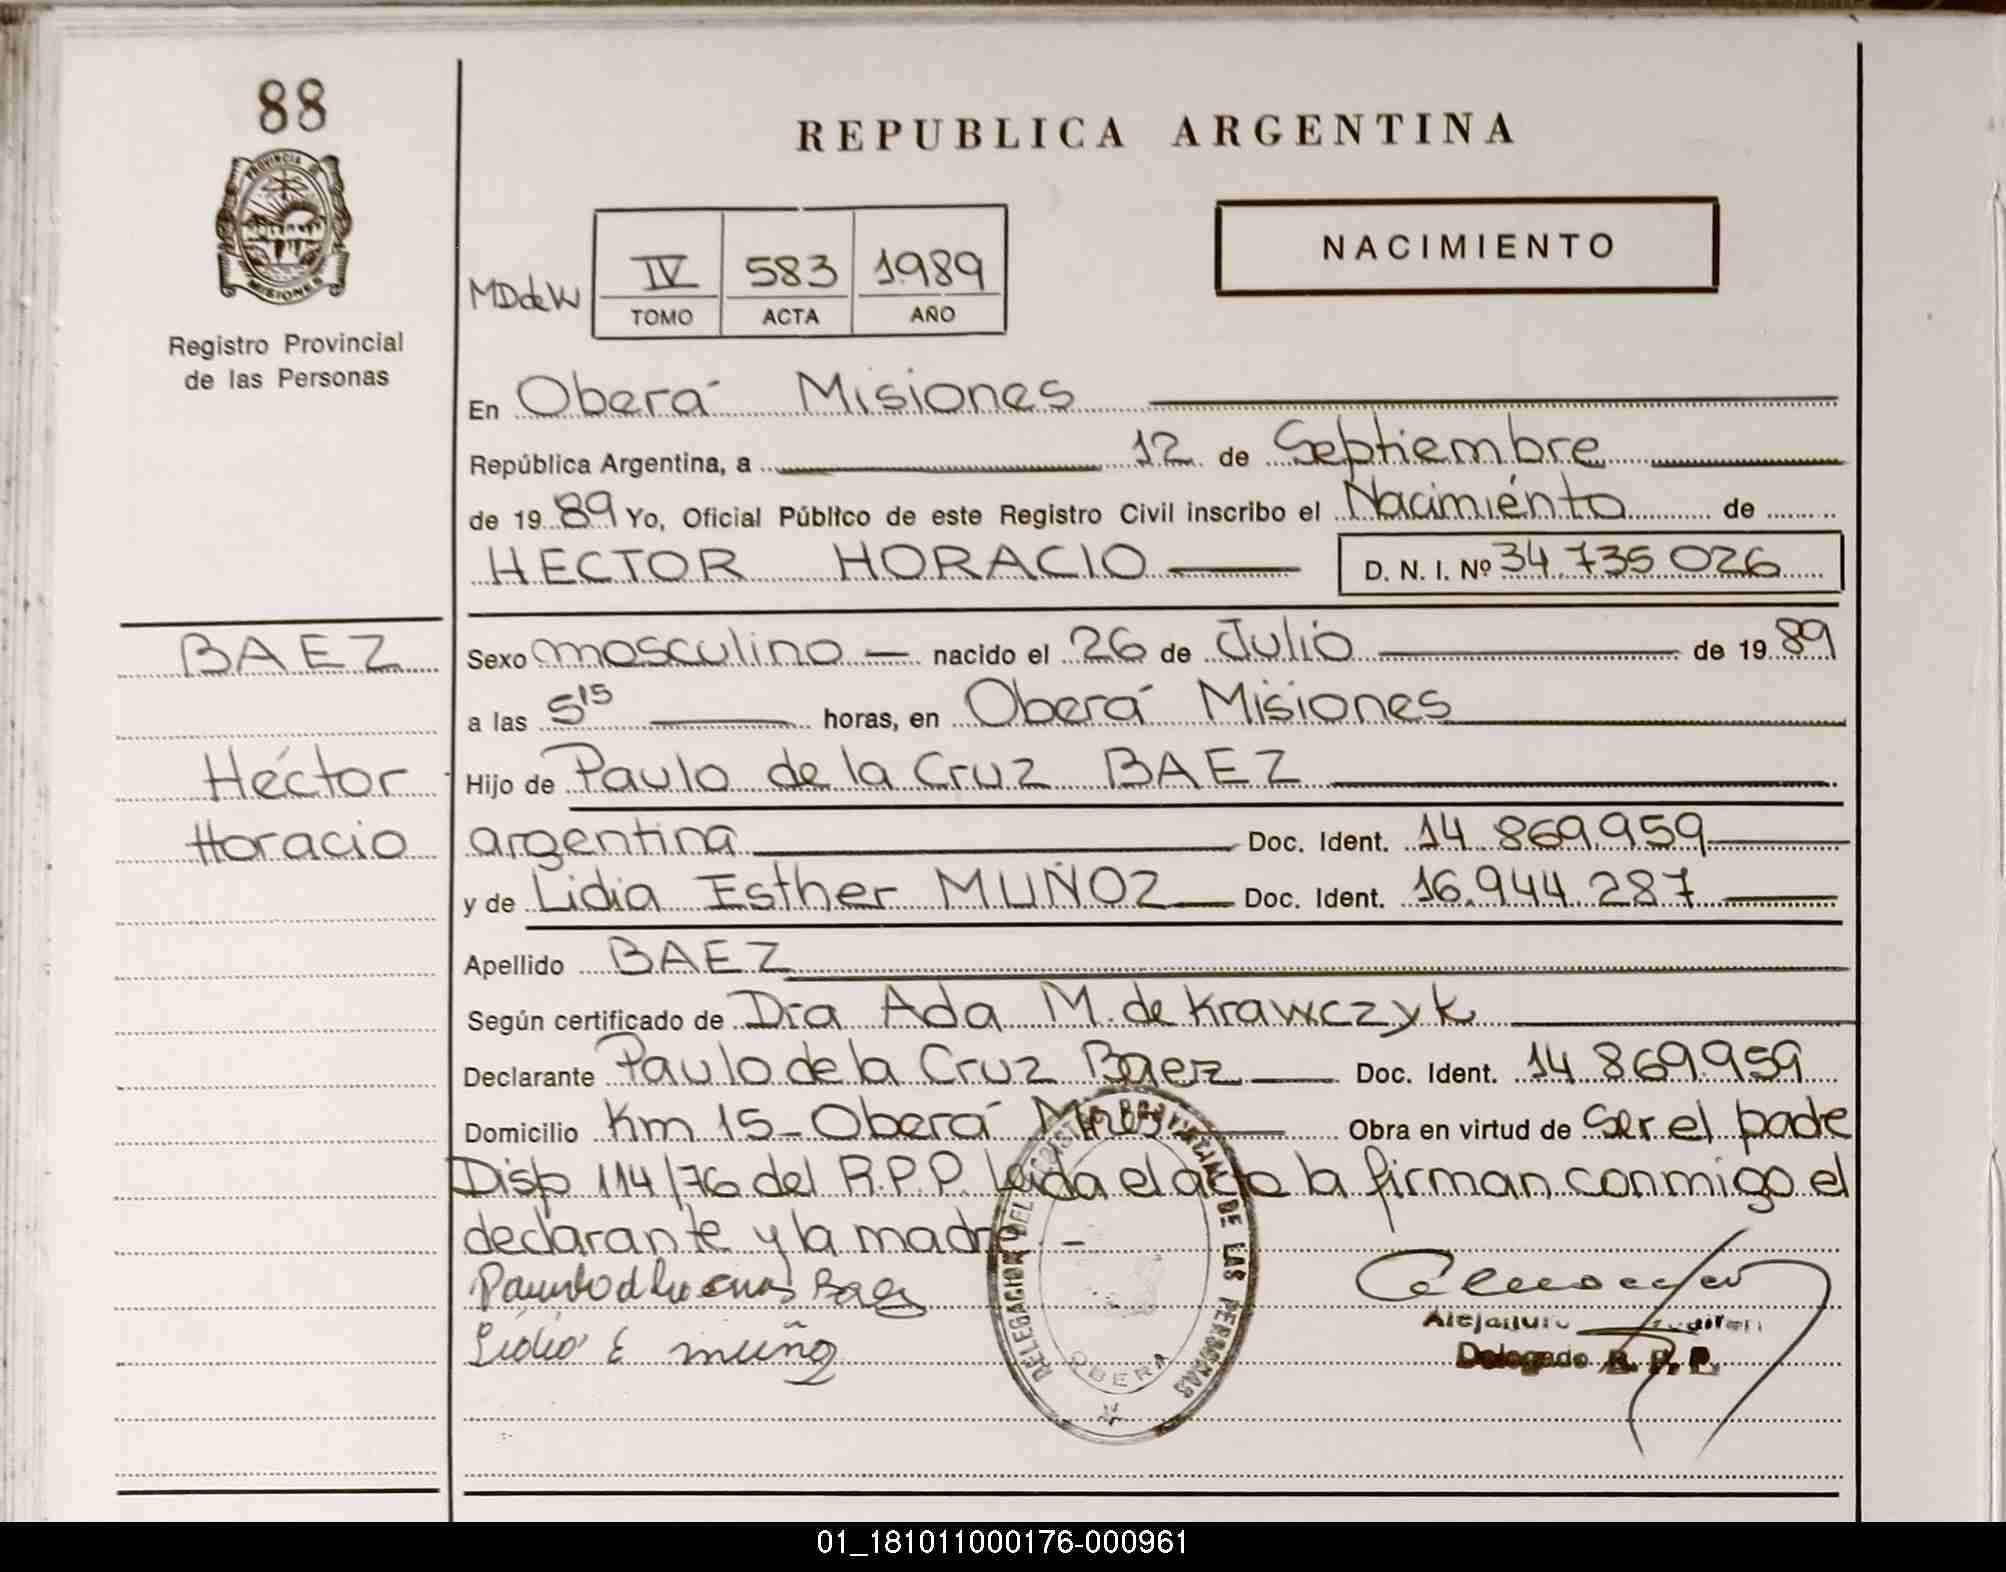 88
PROVINCIA DE
MISIONES
Registro Provincial
de las Personas
REPUBLICA ARGENTINA
NACIMIENTO
MDdeW
IV 583 1989
TOMO ACTA AÑO
En Oberá Misiones
República Argentina, a 12 de Septiembre
de 1989 Yo, Oficial Público de este Registro Civil inscribo el Nacimiénto de
HECTOR HORACIO D. N. I. Nº 34.735.026
BAEZ
Héctor
Horacio
Sexo masculino nacido el 26 de Julio de 1989
a las 5¹⁵ horas, en Oberá Misiones
Hijo de Paulo de la Cruz BAEZ
argentina Doc. Ident. 14.869.959
y de Lidia Esther MUÑOZ Doc. Ident. 16.944.287
Apellido BAEZ
Según certificado de Dra Ada M. de Krawczyk
Declarante Paulo de la Cruz Baez Doc. Ident. 14.869.959
Domicilio Km 15 - Oberá Mnes Obra en virtud de ser el padre
Disp 114/76 del R.P.P. Leida el acta la firman conmigo el
declarante y la madre. -
Baez
Lidia E muñoz
DELEGACION DEL REGISTRO PROVINCIAL DE LAS PERSONAS
OBERA
Delegado R. P. P.
01_181011000176-000961